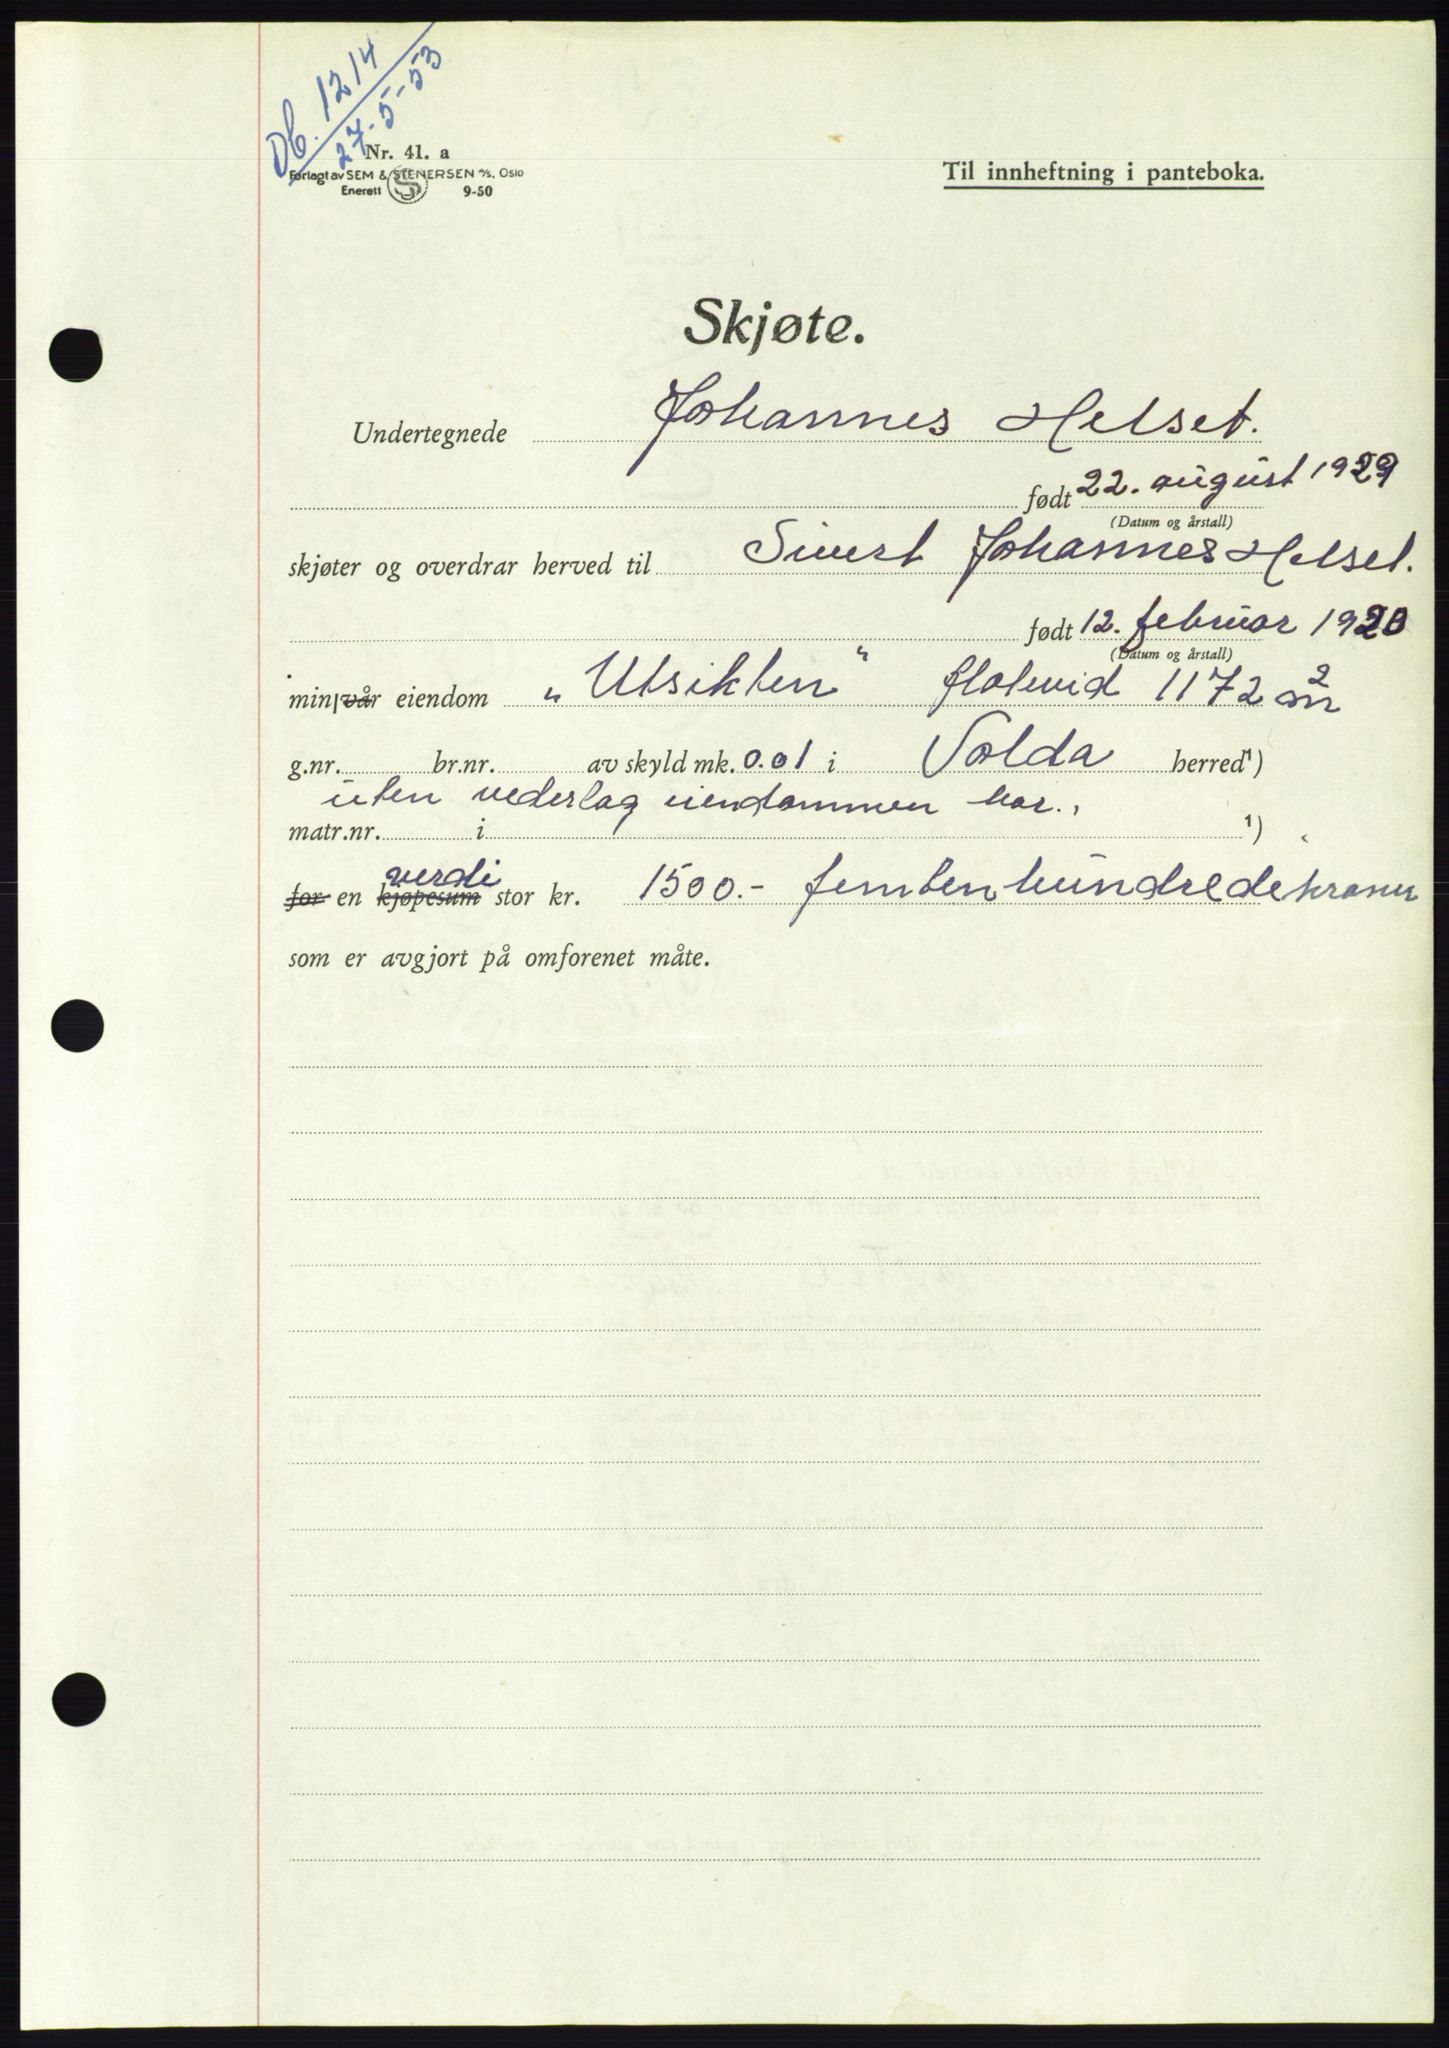 Db. 1214
27-5-53
Nr. 41. a
Forlagt av SEM & STENERSEN A/S. Oslo
Enerett SS 9-50
Til innheftning i panteboka.
Skjøte.
Undertegnede Johannes Helset.
født 22. august 1929
(Datum og årstall)
skjøter og overdrar herved til Sivert Johannes Helset.
født 12. februar 1920
(Datum og årstall)
min/vår eiendom „Utsikten" flatevid 1172 m²
g.nr. br.nr. av skyld mk. 0.01 i Volda herred ¹)
uten vederlag eiendommen har.
matr.nr. i ¹)
verdi
for en kjøpesum stor kr. 1500.- femtenhundredekroner
som er avgjort på omforenet måte.